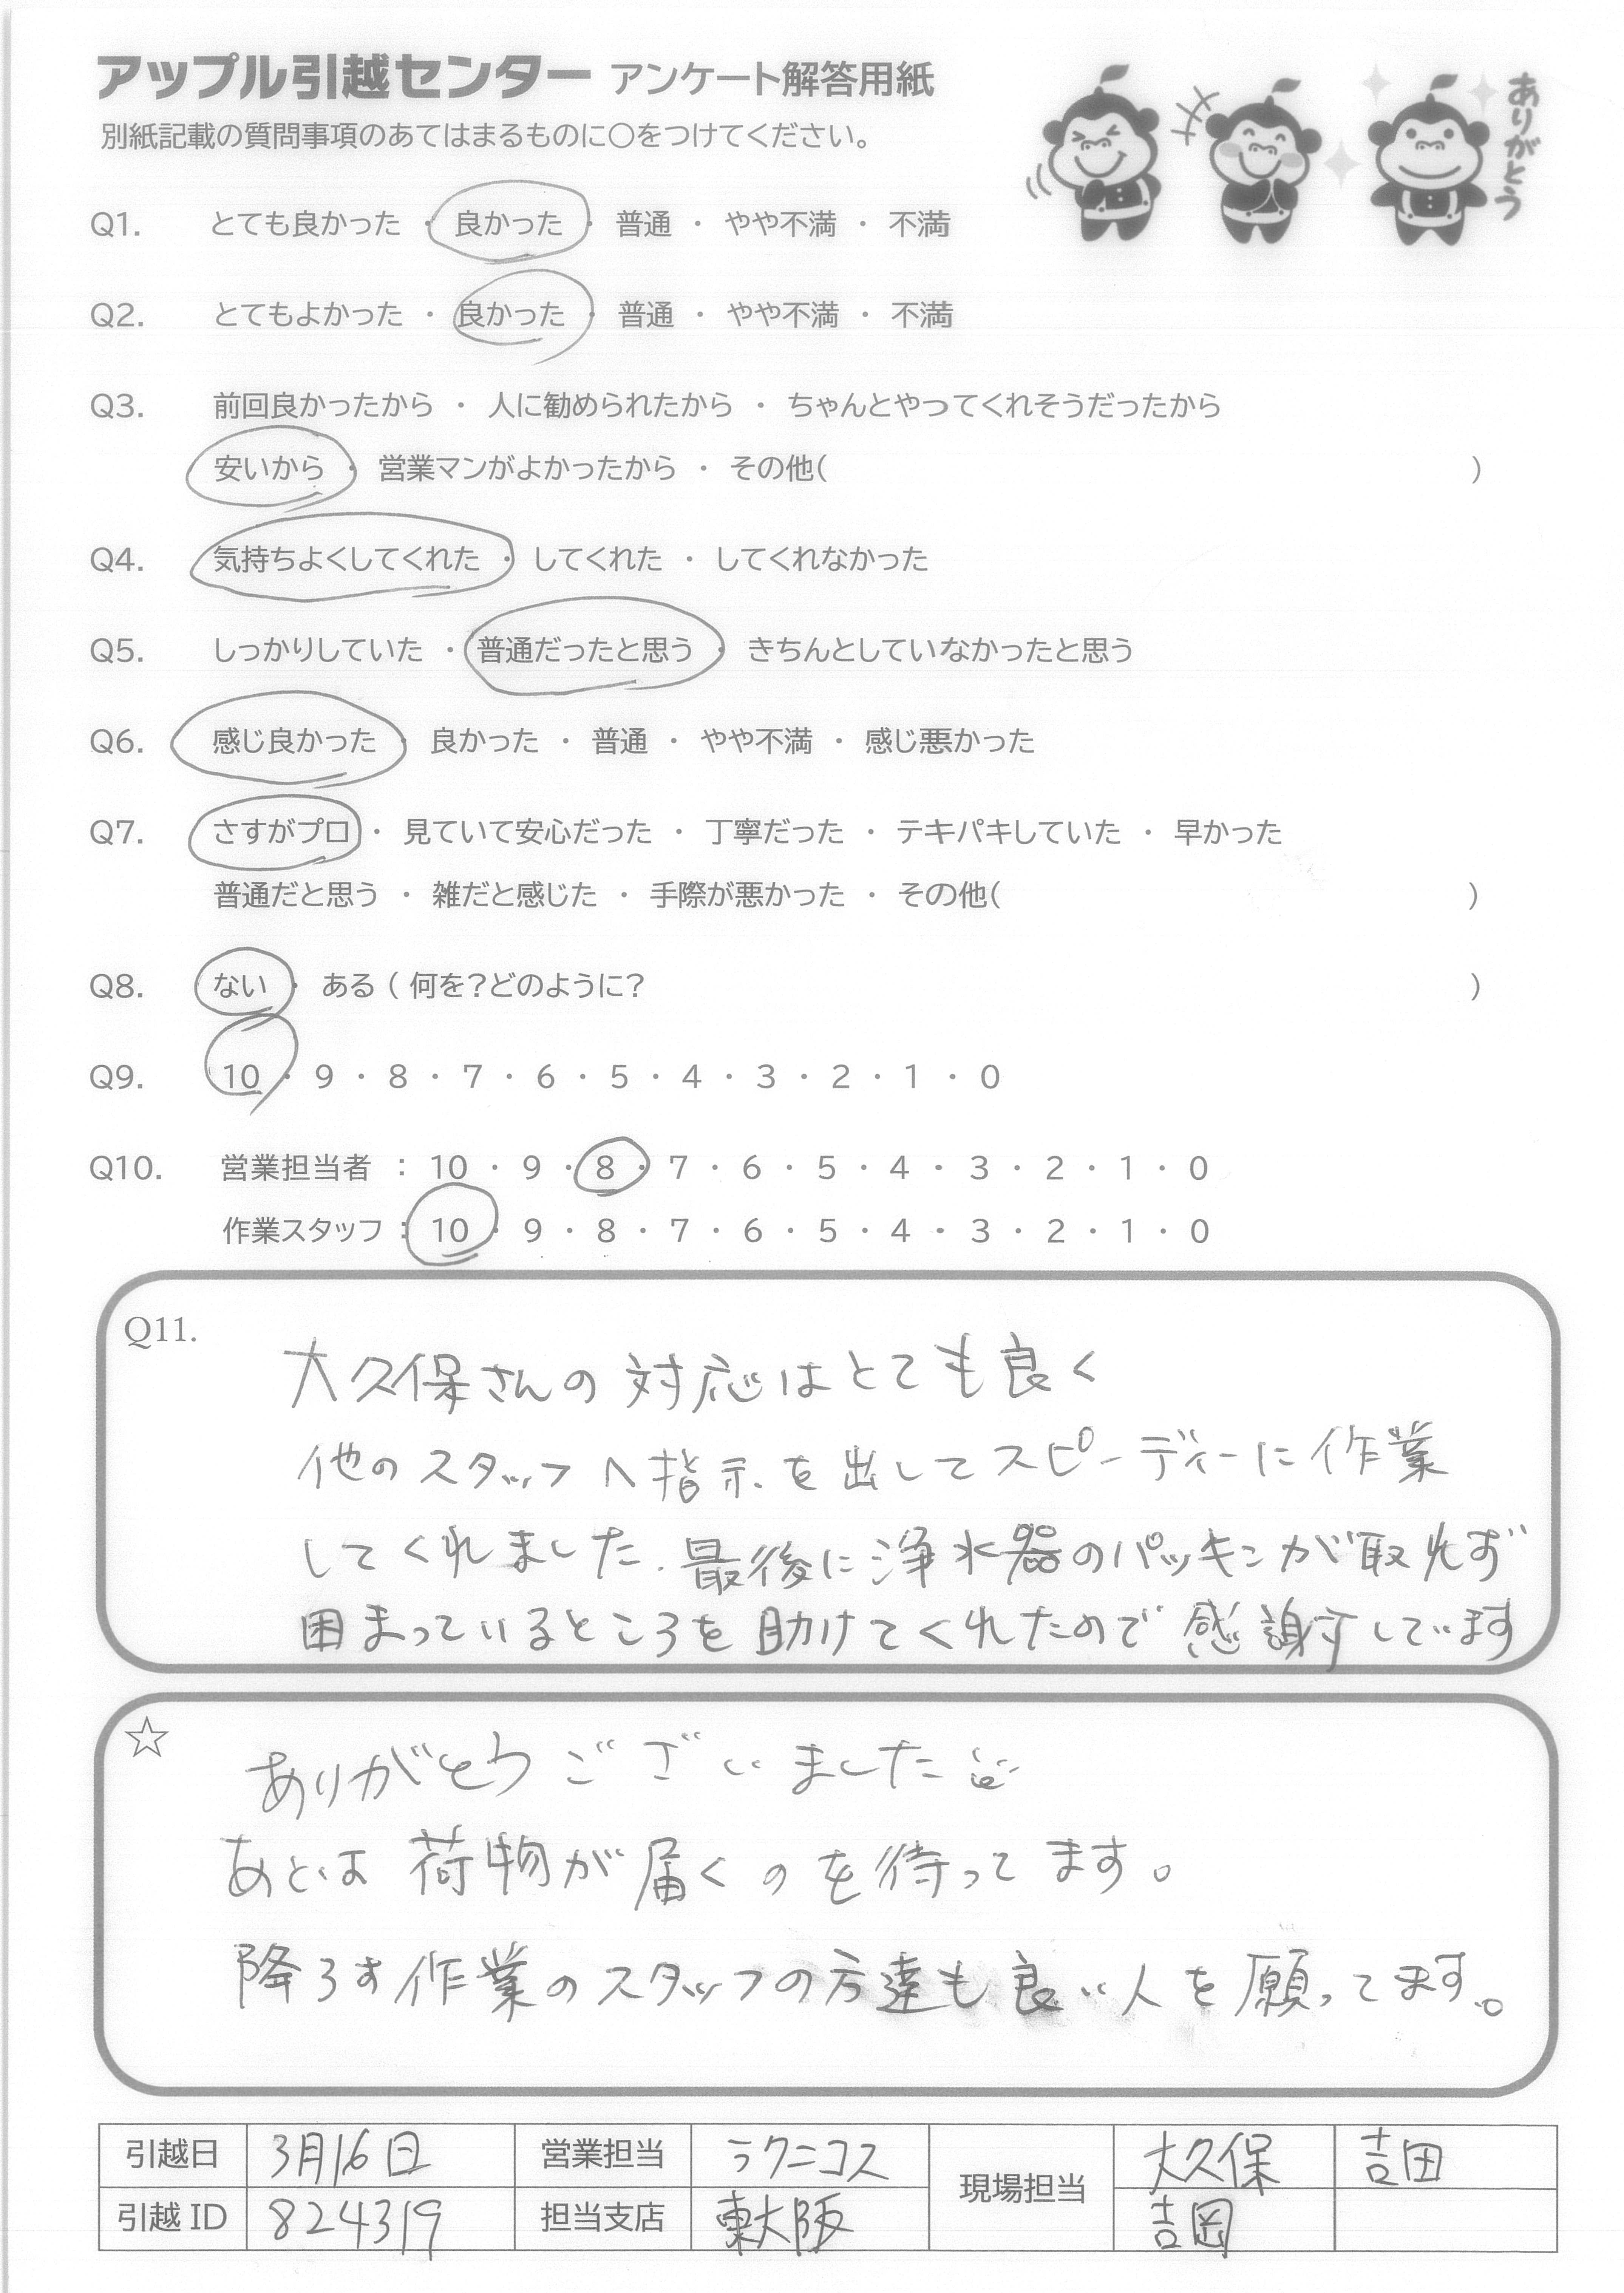 アップル引越センター アンケート解答用紙
ありがとう
別紙記載の質問事項のあてはまるものに〇をつけてください。
Q1. とても良かった ・ 良かった ・ 普通 ・ やや不満 ・ 不満
Q2. とてもよかった ・ 良かった ・ 普通 ・ やや不満 ・ 不満
Q3. 前回良かったから ・ 人に勧められたから ・ ちゃんとやってくれそうだったから
安いから ・ 営業マンがよかったから ・ その他( )
Q4. 気持ちよくしてくれた ・ してくれた ・ してくれなかった
Q5. しっかりしていた ・ 普通だったと思う ・ きちんとしていなかったと思う
Q6. 感じ良かった ・ 良かった ・ 普通 ・ やや不満 ・ 感じ悪かった
Q7. さすがプロ ・ 見ていて安心だった ・ 丁寧だった ・ テキパキしていた ・ 早かった
普通だと思う ・ 雑だと感じた ・ 手際が悪かった ・ その他( )
Q8. ない ・ ある ( 何を?どのように? )
Q9. 10 ・ 9 ・ 8 ・ 7 ・ 6 ・ 5 ・ 4 ・ 3 ・ 2 ・ 1 ・ 0
Q10. 営業担当者 : 10 ・ 9 ・ 8 ・ 7 ・ 6 ・ 5 ・ 4 ・ 3 ・ 2 ・ 1 ・ 0
作業スタッフ : 10 ・ 9 ・ 8 ・ 7 ・ 6 ・ 5 ・ 4 ・ 3 ・ 2 ・ 1 ・ 0
Q11.
大久保さんの対応はとても良く
他のスタッフへ指示を出してスピーディーに作業
してくれました. 最後に浄水器のパッキンが取れず
困まっているところを助けてくれたので感謝しています
☆
ありがとうございました
あとは荷物が届くのを待ってます。
降ろす作業のスタッフの方達も良い人を願ってます。
引越日 3月16日 営業担当 ラクニコス 現場担当 大久保 吉田
引越 ID 824319 担当支店 東大阪 吉岡